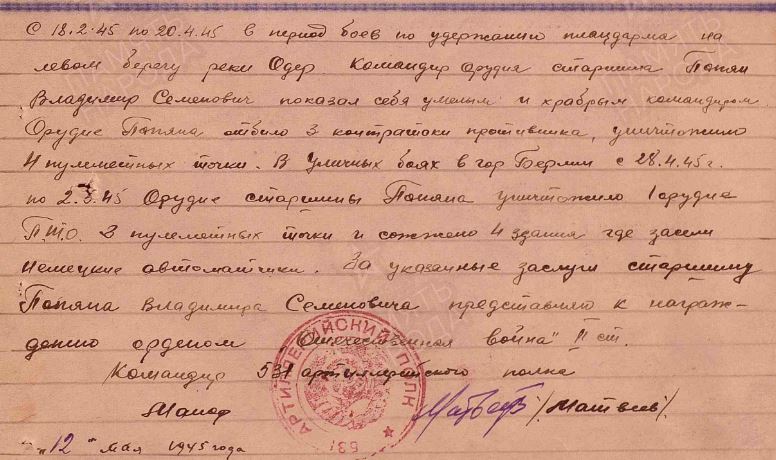 С 18.2.45 по 20.4.45 в период боев по удержанию плацдарма на
левом берегу реки Одер. Командир орудия старшина Попян
Владимир Семенович показал себя умелым и храбрым командиром.
Орудие Попяна отбило 3 контратаки противника, уничтожило
4 пулеметных точки. В уличных боях в гор Берлин с 28.4.45 г.
по 2.5.45 Орудие старшины Попяна уничтожило 1 орудие
П.Т.О. 2 пулеметных точки и сожжено 4 здания где засели
немецкие автоматчики. За указанные заслуги старшину
Попяна Владимира Семеновича представляю к награж-
дению орденом „Отечественная война" II ст.
Командир 531 артиллерийского полка
Майор /Матвеев/
„12" мая 1945 года
АРТИЛЛЕРИЙСКИЙ ПОЛК
531